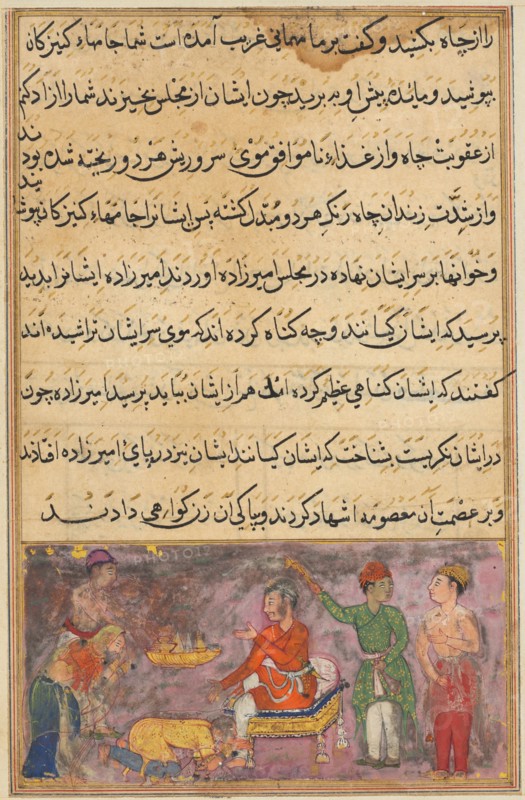 را از چاه بکشید و گفت بر ما مهمانی غریب آمده است شما جامهاء کنیزکان
بپوشید و مایده پیش او برید چون ایشان از مجلس بخیزند شما را ازاد کنم
از عقوبت چاه و از غذاء ناموافق موی سر و ریش هر دو ریخته شده بود
و از شدت زندان چاه رنک هر دو مبدل کشته پس ایشانرا جامهاء کنیزکان پوشا
نیدند
و خوانها بر سر ایشان نهاده در مجلس امیرزاده اوردند امیرزاده ایشانرا بدید
پرسید که ایشان کیانند و چه کناه کرده اند که موی سر ایشان تراشیده اند
کفتند که ایشان کناهی عظیم کرده اند هم از ایشان بباید پرسید امیرزاده چون
در ایشان نکریست بشناخت که ایشان کیانند ایشان نیز در پای امیرزاده افتادند
و بر عصمت ان معصومه اشهاد کردند و بپاکی ان زن کواهی دادند
PHOTO12